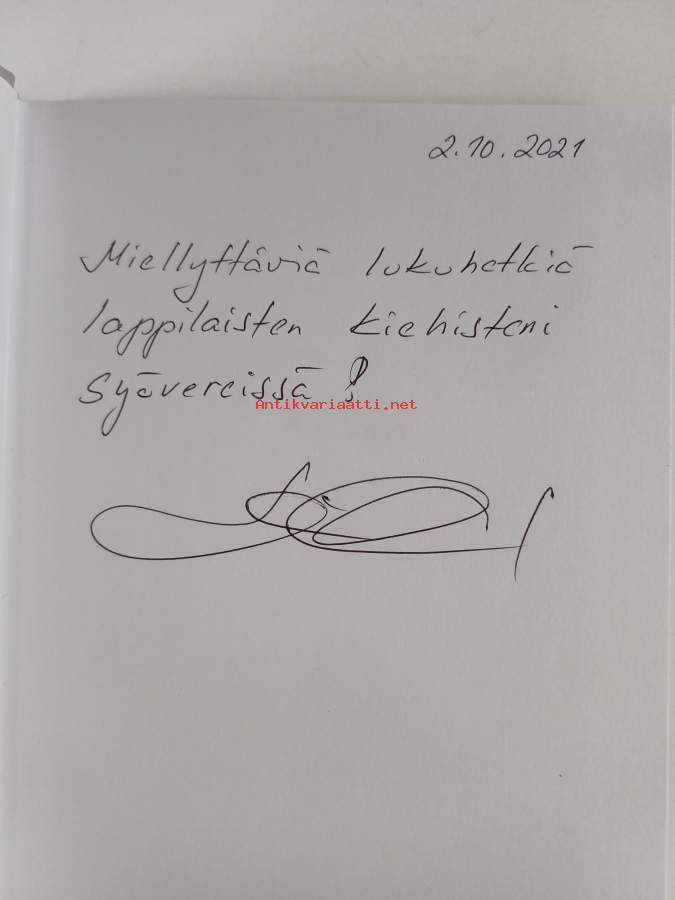 2.10.2021
Miellyttäviä lukuhetkiä
lappilaisten kiehisteni
syövereissä!
Antikvariaatti.net